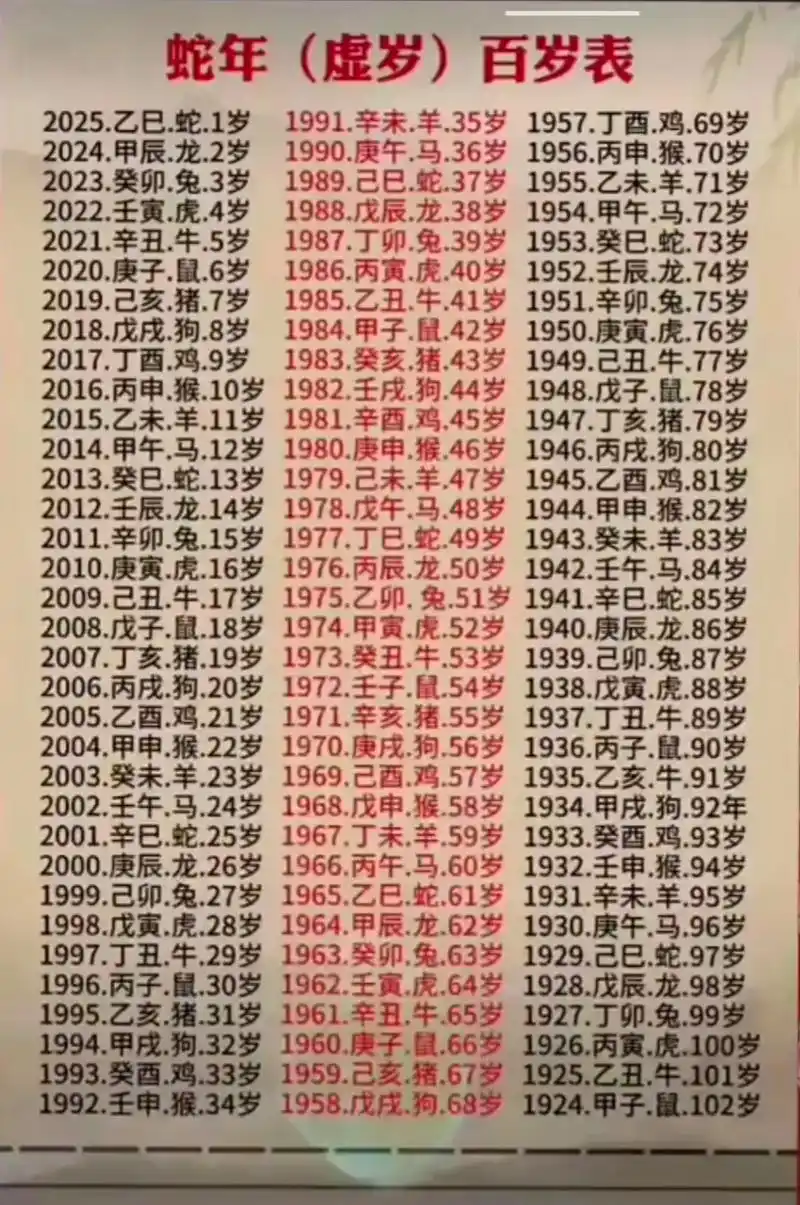 蛇年（虚岁）百岁表
2025.乙巳.蛇.1岁
2024.甲辰.龙.2岁
2023.癸卯.兔.3岁
2022.壬寅.虎.4岁
2021.辛丑.牛.5岁
2020.庚子.鼠.6岁
2019.己亥.猪.7岁
2018.戊戌.狗.8岁
2017.丁酉.鸡.9岁
2016.丙申.猴.10岁
2015.乙未.羊.11岁
2014.甲午.马.12岁
2013.癸巳.蛇.13岁
2012.壬辰.龙.14岁
2011.辛卯.兔.15岁
2010.庚寅.虎.16岁
2009.己丑.牛.17岁
2008.戊子.鼠.18岁
2007.丁亥.猪.19岁
2006.丙戌.狗.20岁
2005.乙酉.鸡.21岁
2004.甲申.猴.22岁
2003.癸未.羊.23岁
2002.壬午.马.24岁
2001.辛巳.蛇.25岁
2000.庚辰.龙.26岁
1999.己卯.兔.27岁
1998.戊寅.虎.28岁
1997.丁丑.牛.29岁
1996.丙子.鼠.30岁
1995.乙亥.猪.31岁
1994.甲戌.狗.32岁
1993.癸酉.鸡.33岁
1992.壬申.猴.34岁
1991.辛未.羊.35岁
1990.庚午.马.36岁
1989.己巳.蛇.37岁
1988.戊辰.龙.38岁
1987.丁卯.兔.39岁
1986.丙寅.虎.40岁
1985.乙丑.牛.41岁
1984.甲子.鼠.42岁
1983.癸亥.猪.43岁
1982.壬戌.狗.44岁
1981.辛酉.鸡.45岁
1980.庚申.猴.46岁
1979.己未.羊.47岁
1978.戊午.马.48岁
1977.丁巳.蛇.49岁
1976.丙辰.龙.50岁
1975.乙卯.兔.51岁
1974.甲寅.虎.52岁
1973.癸丑.牛.53岁
1972.壬子.鼠.54岁
1971.辛亥.猪.55岁
1970.庚戌.狗.56岁
1969.己酉.鸡.57岁
1968.戊申.猴.58岁
1967.丁未.羊.59岁
1966.丙午.马.60岁
1965.乙巳.蛇.61岁
1964.甲辰.龙.62岁
1963.癸卯.兔.63岁
1962.壬寅.虎.64岁
1961.辛丑.牛.65岁
1960.庚子.鼠.66岁
1959.己亥.猪.67岁
1958.戊戌.狗.68岁
1957.丁酉.鸡.69岁
1956.丙申.猴.70岁
1955.乙未.羊.71岁
1954.甲午.马.72岁
1953.癸巳.蛇.73岁
1952.壬辰.龙.74岁
1951.辛卯.兔.75岁
1950.庚寅.虎.76岁
1949.己丑.牛.77岁
1948.戊子.鼠.78岁
1947.丁亥.猪.79岁
1946.丙戌.狗.80岁
1945.乙酉.鸡.81岁
1944.甲申.猴.82岁
1943.癸未.羊.83岁
1942.壬午.马.84岁
1941.辛巳.蛇.85岁
1940.庚辰.龙.86岁
1939.己卯.兔.87岁
1938.戊寅.虎.88岁
1937.丁丑.牛.89岁
1936.丙子.鼠.90岁
1935.乙亥.牛.91岁
1934.甲戌.狗.92年
1933.癸酉.鸡.93岁
1932.壬申.猴.94岁
1931.辛未.羊.95岁
1930.庚午.马.96岁
1929.己巳.蛇.97岁
1928.戊辰.龙.98岁
1927.丁卯.兔.99岁
1926.丙寅.虎.100岁
1925.乙丑.牛.101岁
1924.甲子.鼠.102岁